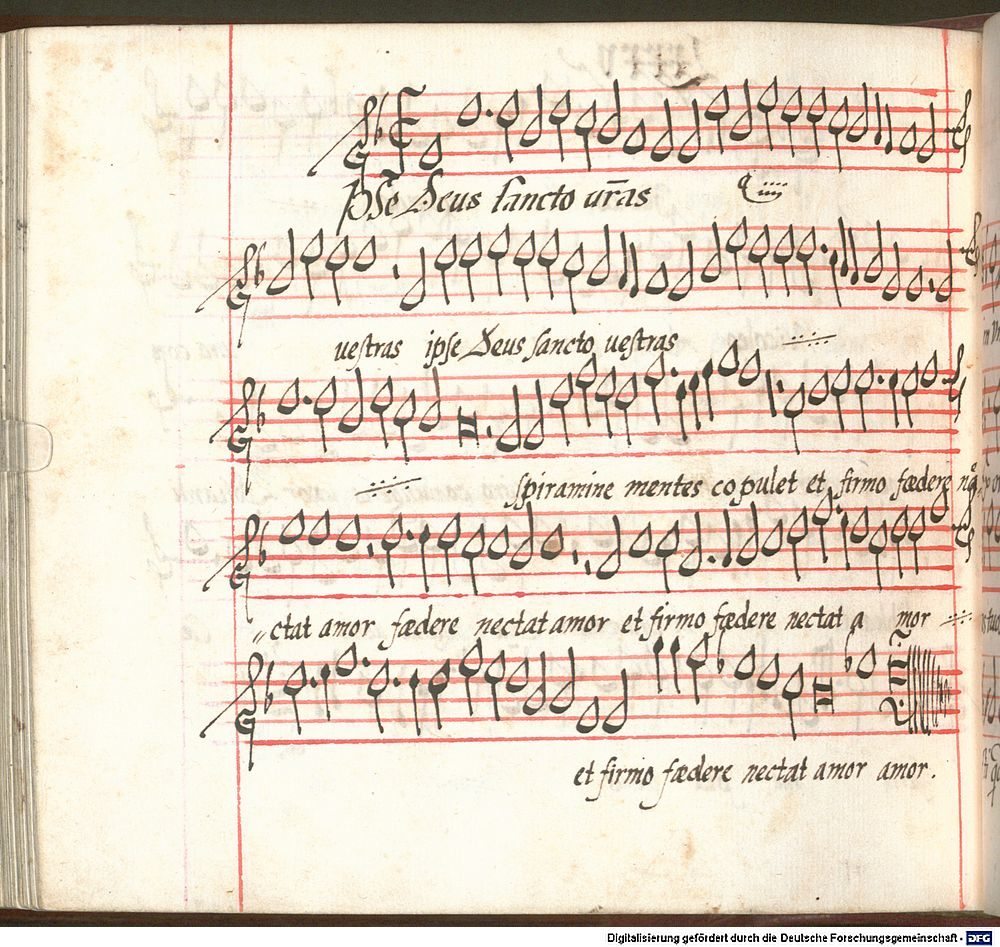 IPse Deus sancto vr̄as
vestras ipse Deus sancto vestras
spiramine mentes copulet et firmo fœdere
ctat amor fœdere nectat amor et firmo fœdere nectat a mor
et firmo fœdere nectat amor amor.
Digitalisierung gefördert durch die Deutsche Forschungsgemeinschaft - DFG